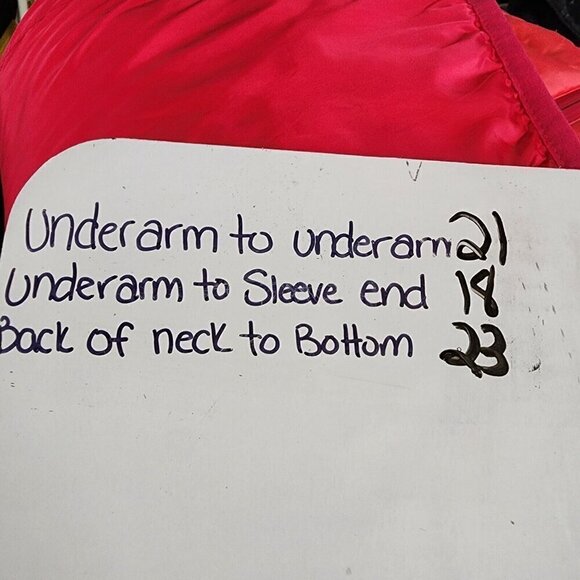 Underarm to underarm 21
Underarm to Sleeve end 18
Back of neck to Bottom 23